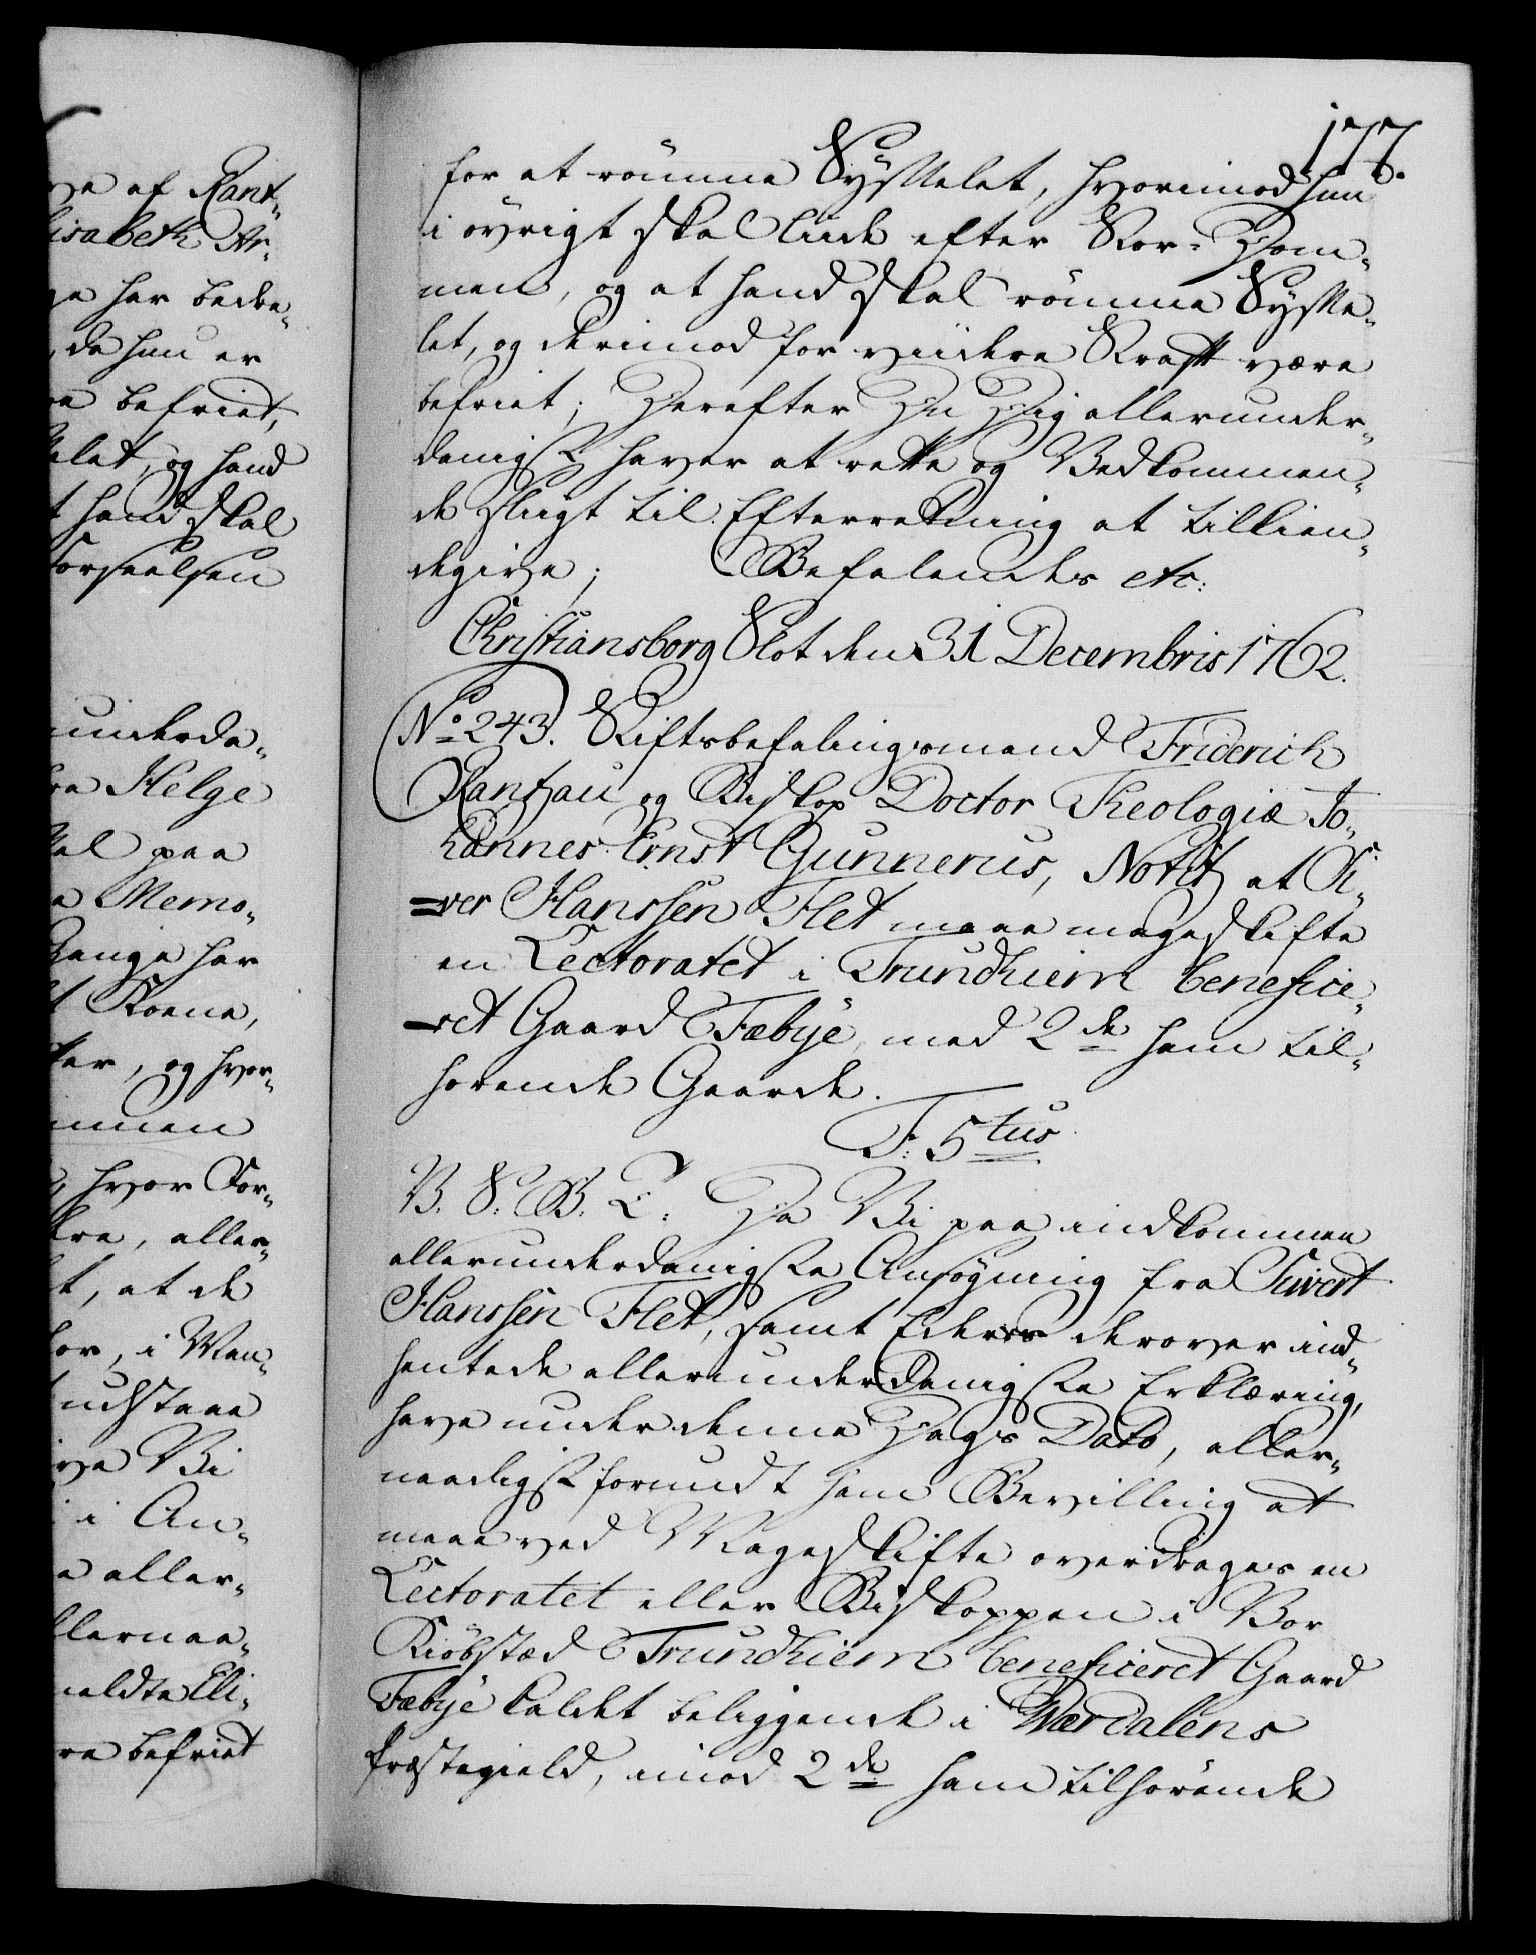 177.
for at römme Sysselet, hvorimod hun
i övrigt skal liide efter Kor-Dom-
men, og at hand skal römme Sysse-
let, og derimod for viidere Straff være
befriet; Derefter Du Dig allerunder-
danigst haver at rette og Vedkommen-
de sligt til Efterretning at tillien-
degive; Befalendes etc:
Christiansborg Slot den 31 Decembris 1762.
No 243. Stiftsbefalingsmand Friderich
Rantzau og Biskop Doctor Theologiæ Jo-
hannes Ernst Gunnerus, Notit, at Si-
=ver Hanssen Flet maae mageskifte
en Lectoratet i Trundhiem benefice-
=ret Gaard Fæbye, med 2de ham til-
hörende Gaarde.
F: 5tus
V. S. B. T: Da Vi paa indkommen
allerunderdanigste Ansögning fra Sivert
Hanssen Flet, samt Eders derover ind-
hentede allerunderdanigste Erklæring,
have under denne Dags Dato, aller-
naadigst forundt ham Bevilling at
maae ved Mageskifte overdrages en
Lectoratet eller Biskoppen i Vor
Kiöbstæd Trundhiem beneficeret Gaard
Fæbye kaldet beliggende i Værdalens
Præstegield, imod 2de ham tilhörende
ve af Rant-
lisabeth Ar-
ge har bedre-
, da hun er
re befriet,
selet, og hand
t hand skal
Forseelsen
underda-
fra Helge
Sal paa
a Memo-
Gange har
t Skoene,
ter, og hvor-
, hvor For-
, aller-
t, at de
for, i Man-
udstaae
ive Vi
i An-
e aller-
llernaa-
meldte Eli-
re befriet